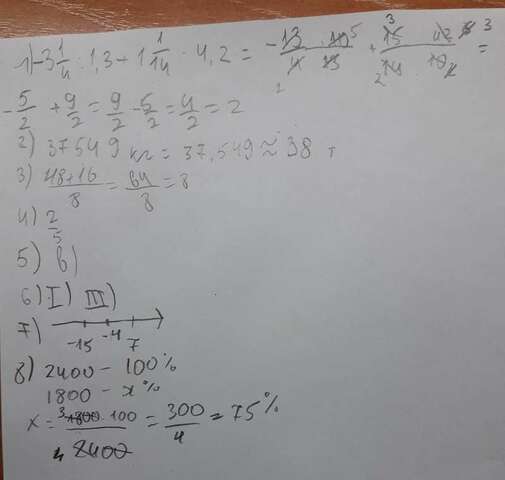 1) -3 1/4 : 1,3 + 1 1/14 · 4,2 = -13/4 · 10/13 + 15/14 · 42/10 =
-5/2 + 9/2 = 9/2 - 5/2 = 4/2 = 2
2) 37549 кг = 37,549 ≈ 38 т
3) 48+16/8 = 64/8 = 8
4) 2/5
5) в)
6) I) III)
7) -15 -4 7
8) 2400 - 100%
1800 - x%
x = 1800 · 100/2400 = 300/4 = 75%